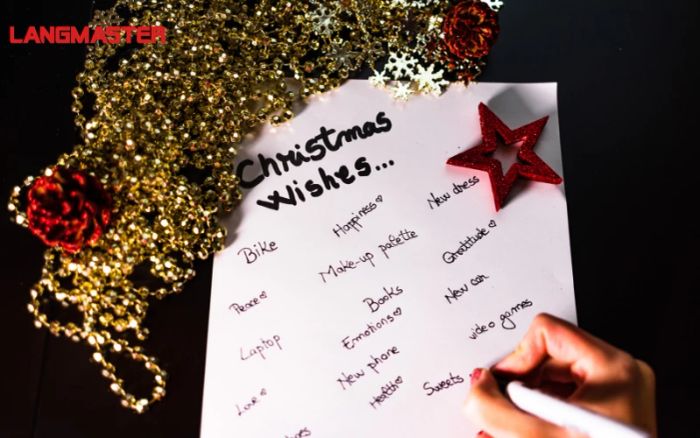 LANGMASTER
Christmas
Wishes...
Happiness♡
New dress
Bike
Make-up palette
Gratitude♡
Peace♡
Books
New car
Laptop
Emotions♡
video games
New phone
Love♡
Health♡
Sweets